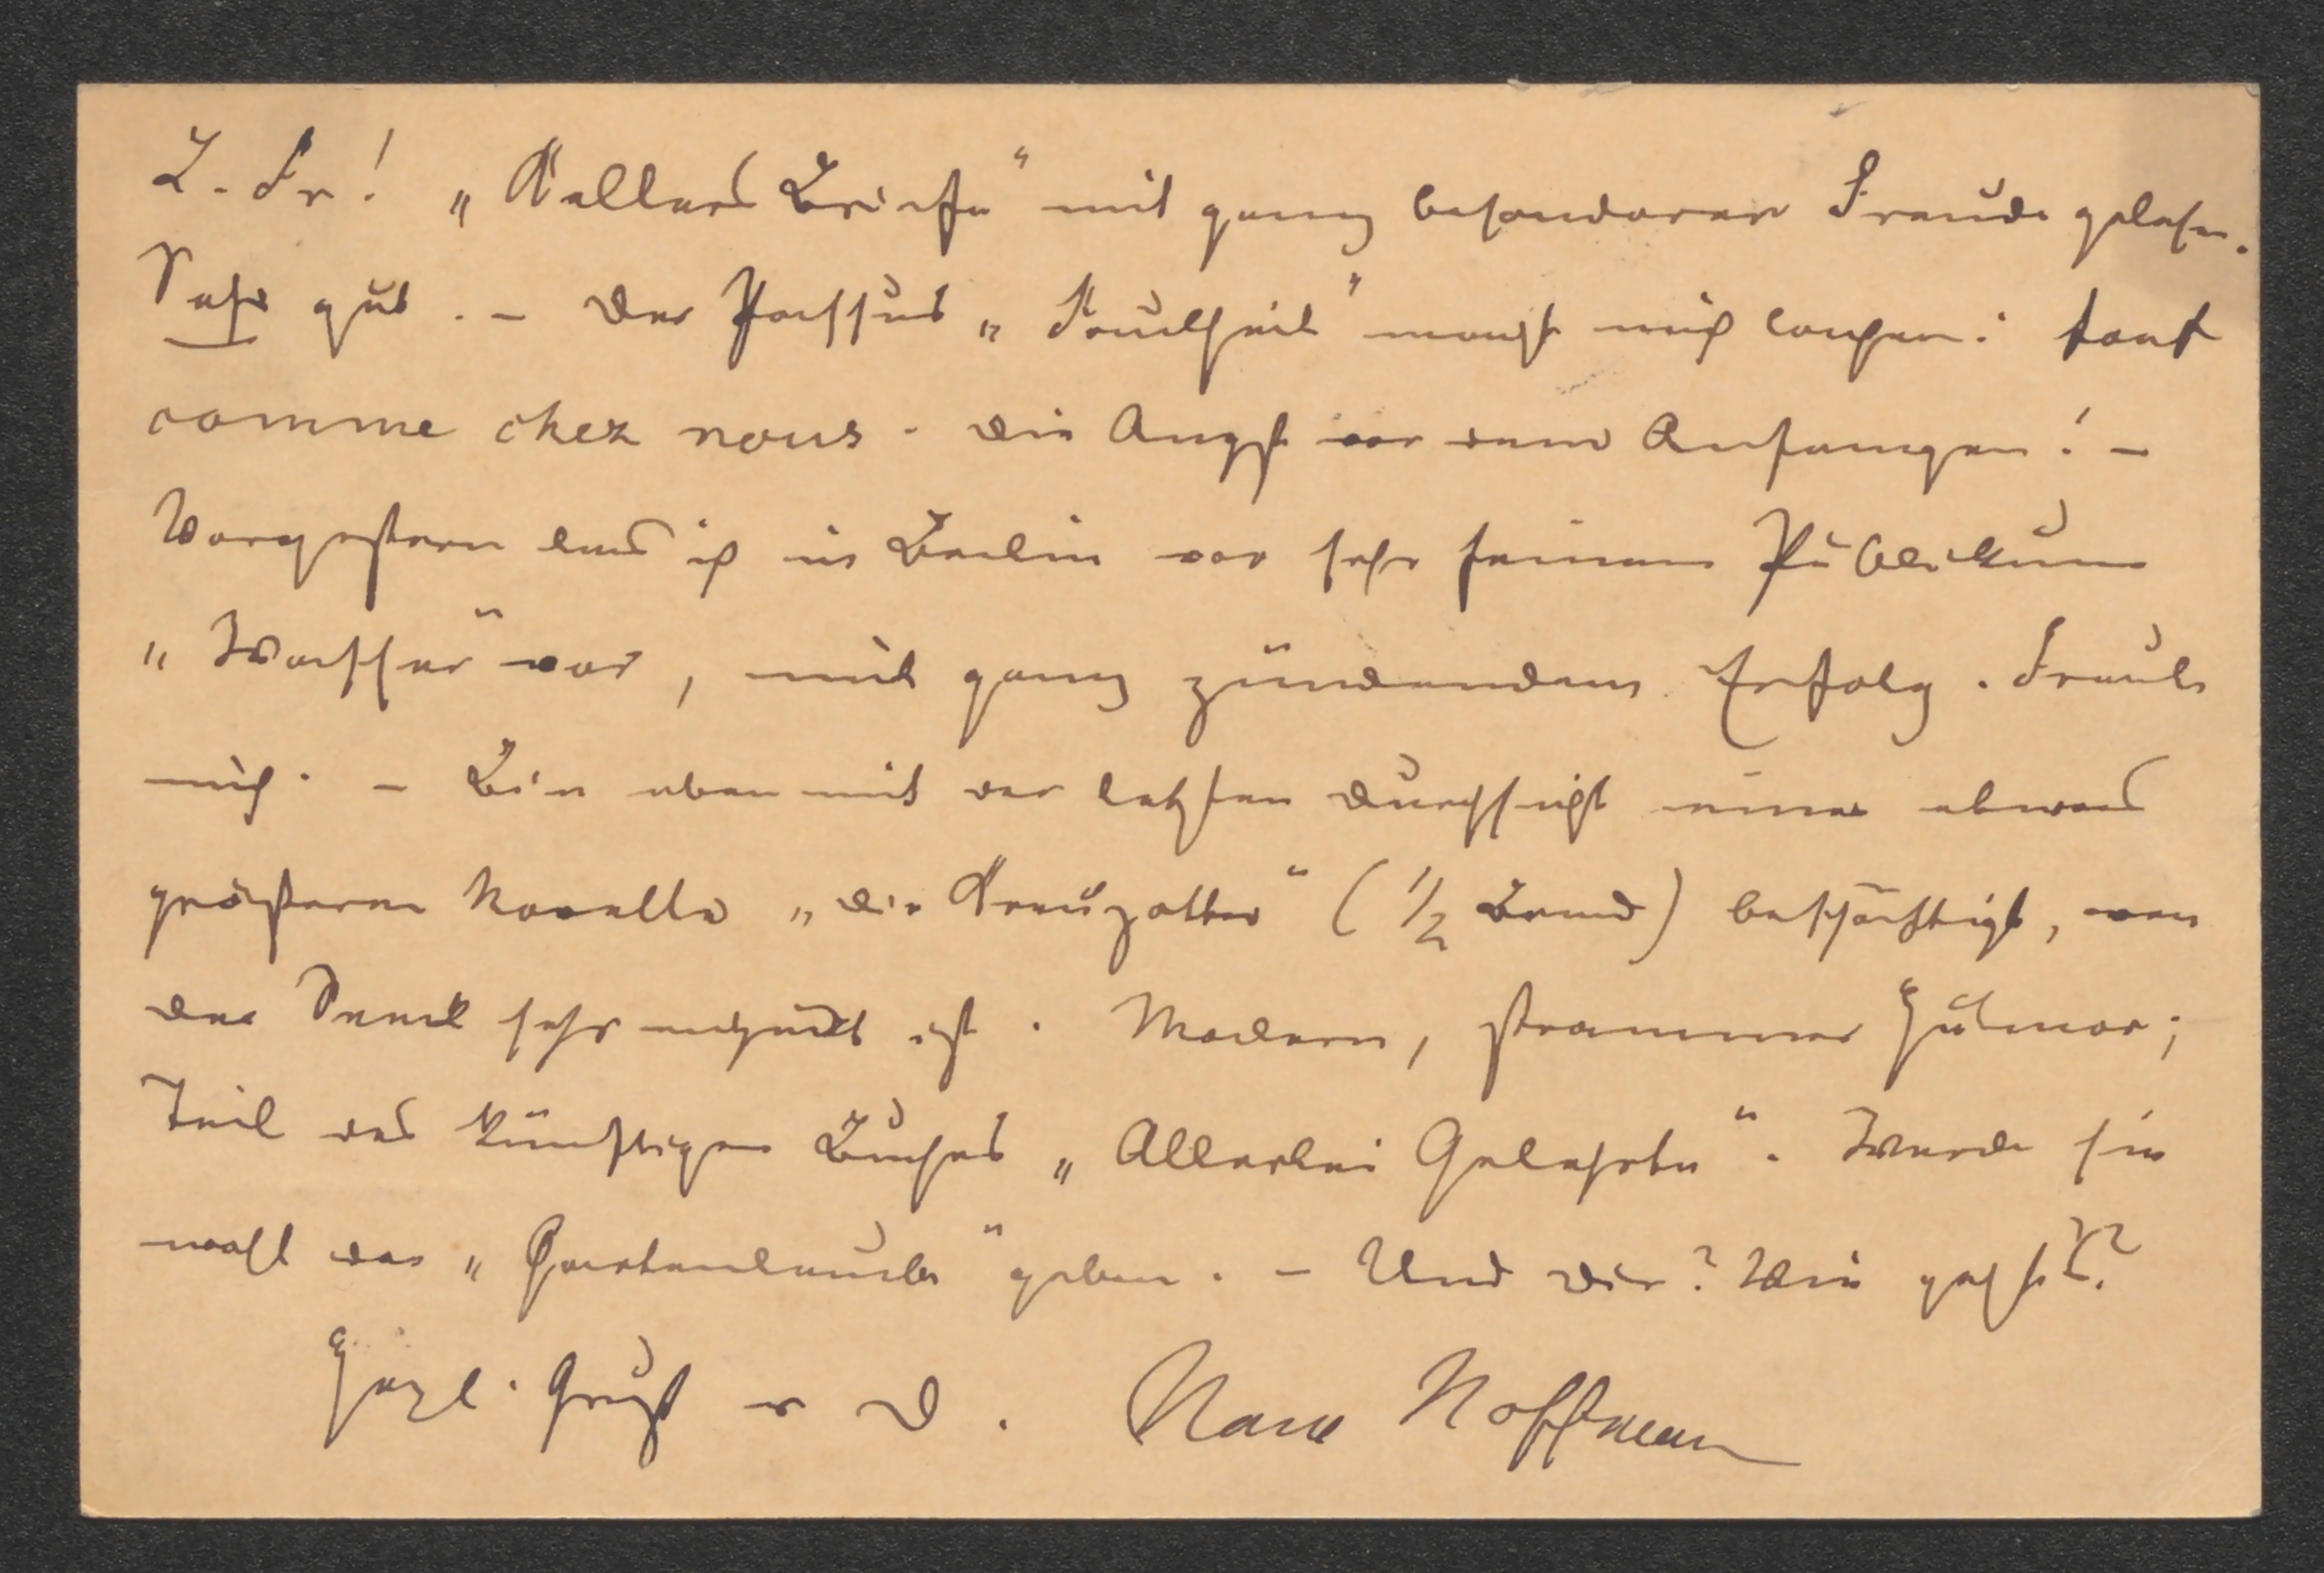 L. Fr! „Kellers Briefe“ mit ganz besonderer Freude gelesen.
Sehr gut. – Der Passus „Faulheit“ macht mich lachen: tout
comme chez nous. Die Angst vor dem Anfangen! –
Vorgestern las ich in Berlin vor sehr feinem Publikum
„Wasser“ vor, mit ganz zündendem Erfolg. Freute
mich. – Bin eben mit der letzten Durchsicht einer etwas
größeren Novelle „Die Kreuzotter“ (1/2 Band) beschäftigt, von
der sehr entzückt ist. Modern, strammer Humor;
Teil des künftigen Buches „Allerlei Gelehrte“. Werde sie
wohl der „Gartenlaube“ geben. – Und Dir? Wie geht's?
Herzl. Gruß v D. Hans Hoffmann